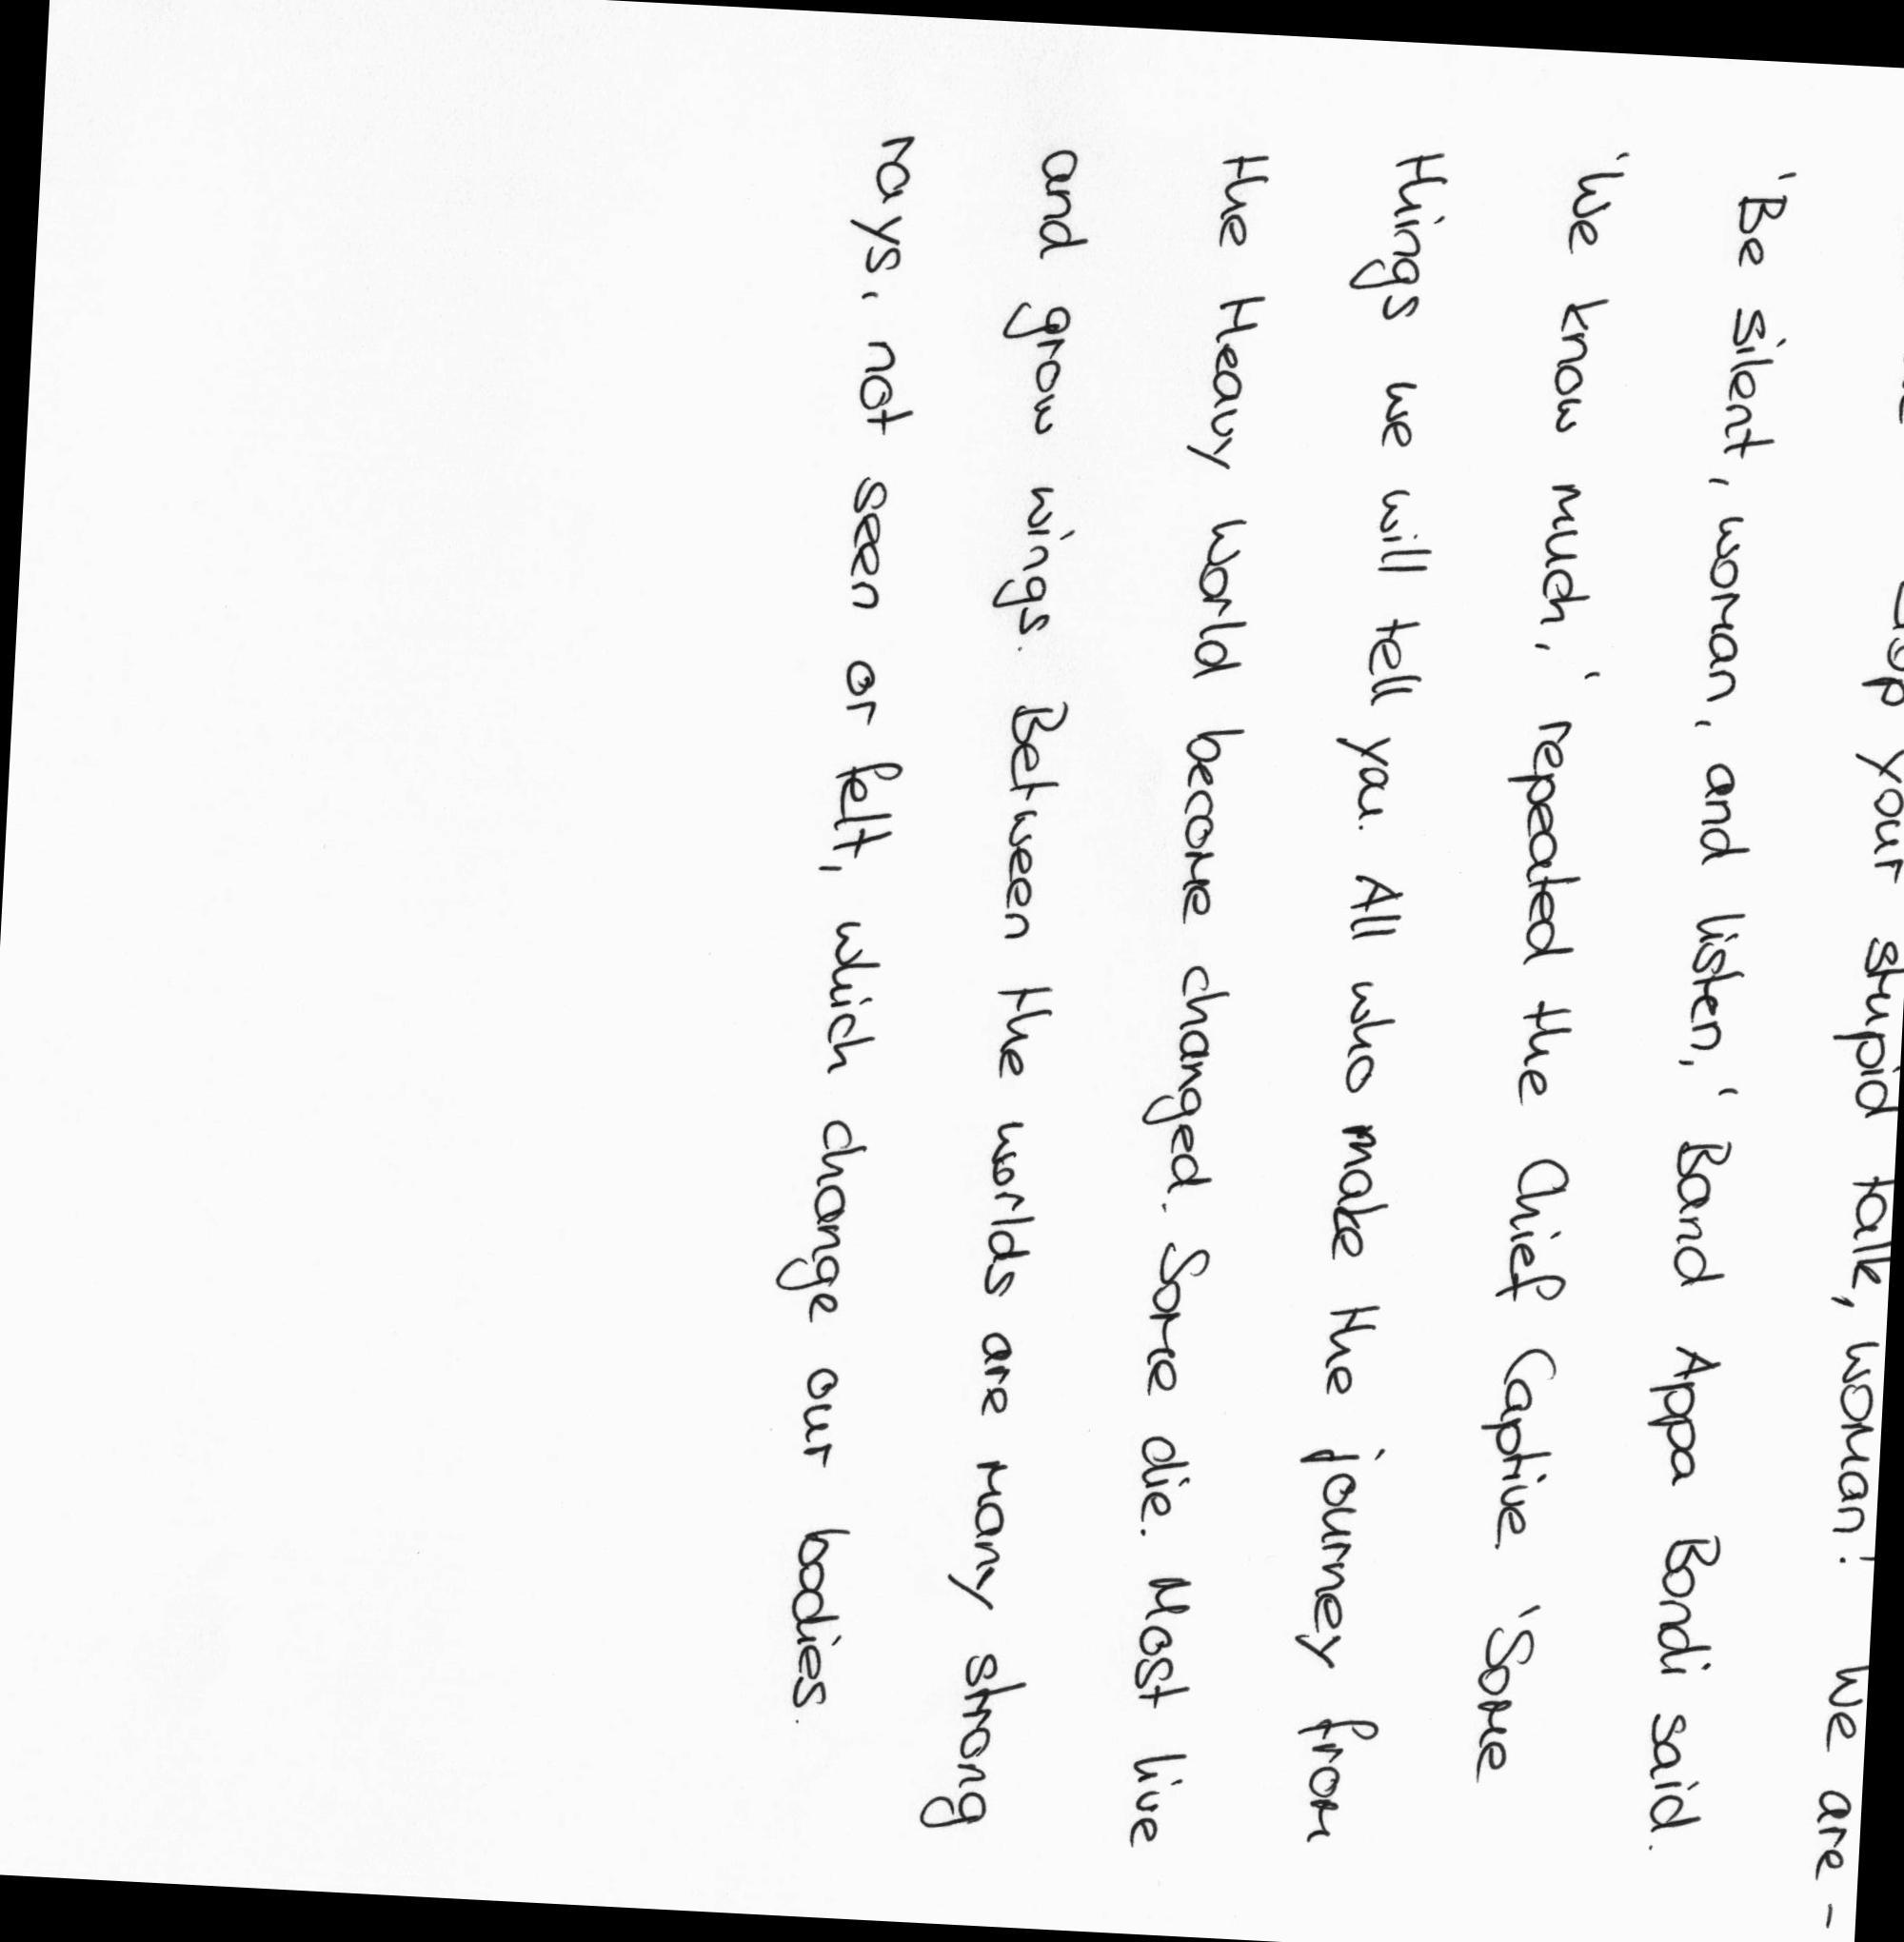 your stupid talk, woman! We are -
'Be silent, woman, and listen,' Band Appa Bondi said.
'We know much,' repeated the Chief Captive 'Some
things we will tell you. All who make the journey from
the Heavy World become changed. Some die. Most live
and grow wings. Between the worlds are many strong
rays, not seen or felt, which change our bodies.